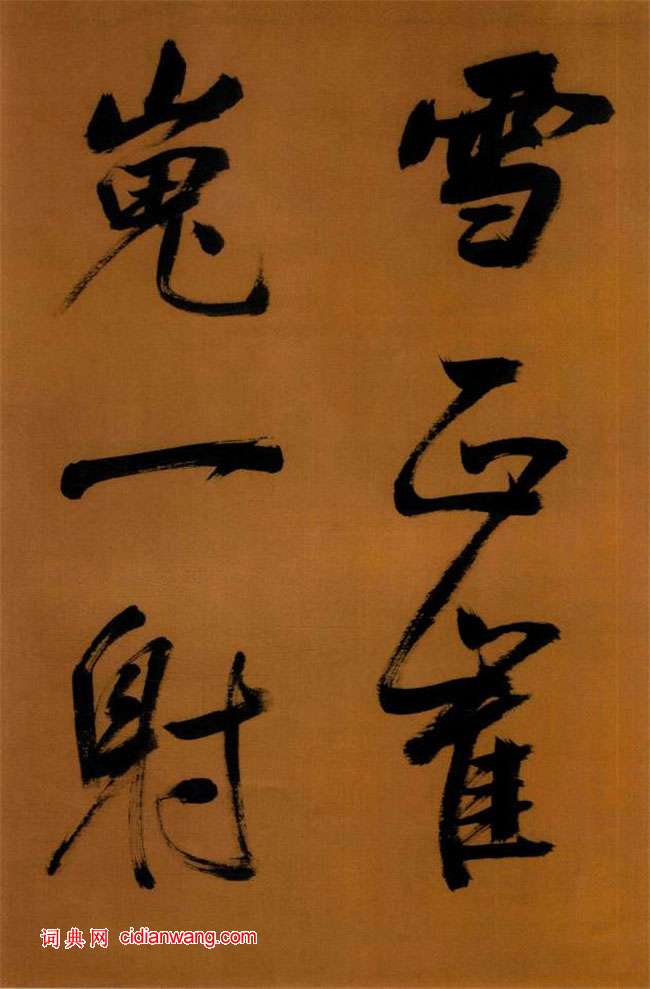 雪正崔
嵬一射
词典网 cidianwang.com